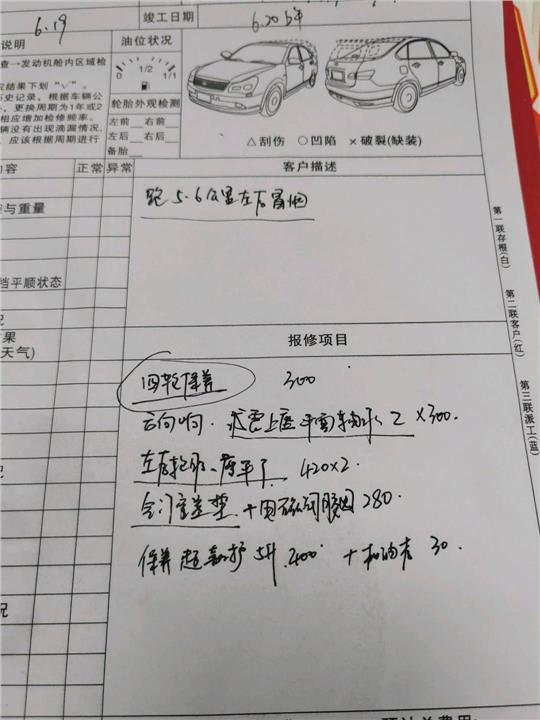 6.19
竣工日期
6.20下午
说明
油位状况
查一发动机舱内区域检
1/2
1/1
完结果下划“√”。
历史记录，根据车辆公
，更换周期为1年或2
相应增加检修频率。
辆没有出现滴漏情况，
，应该根据周期进行
轮胎外观检测
左前
右前
左后
右后
备胎
△刮伤 ○凹陷 ×破裂(缺装)
内容
正常
异常
客户描述
跑5.6公里左右冒烟
与重量
挡平顺状态
果
天气)
况
报修项目
四轮保养 300
方向响. 减震上座 平面轴承 2 ×300.
左右轮胎 磨平了 420×2.
气门室盖垫 +电磁阀胶圈 280.
保养 超喜护 5升.400 +机油壳 30.
第一联存根(白)
第二联客户(红)
第三联派工(蓝)